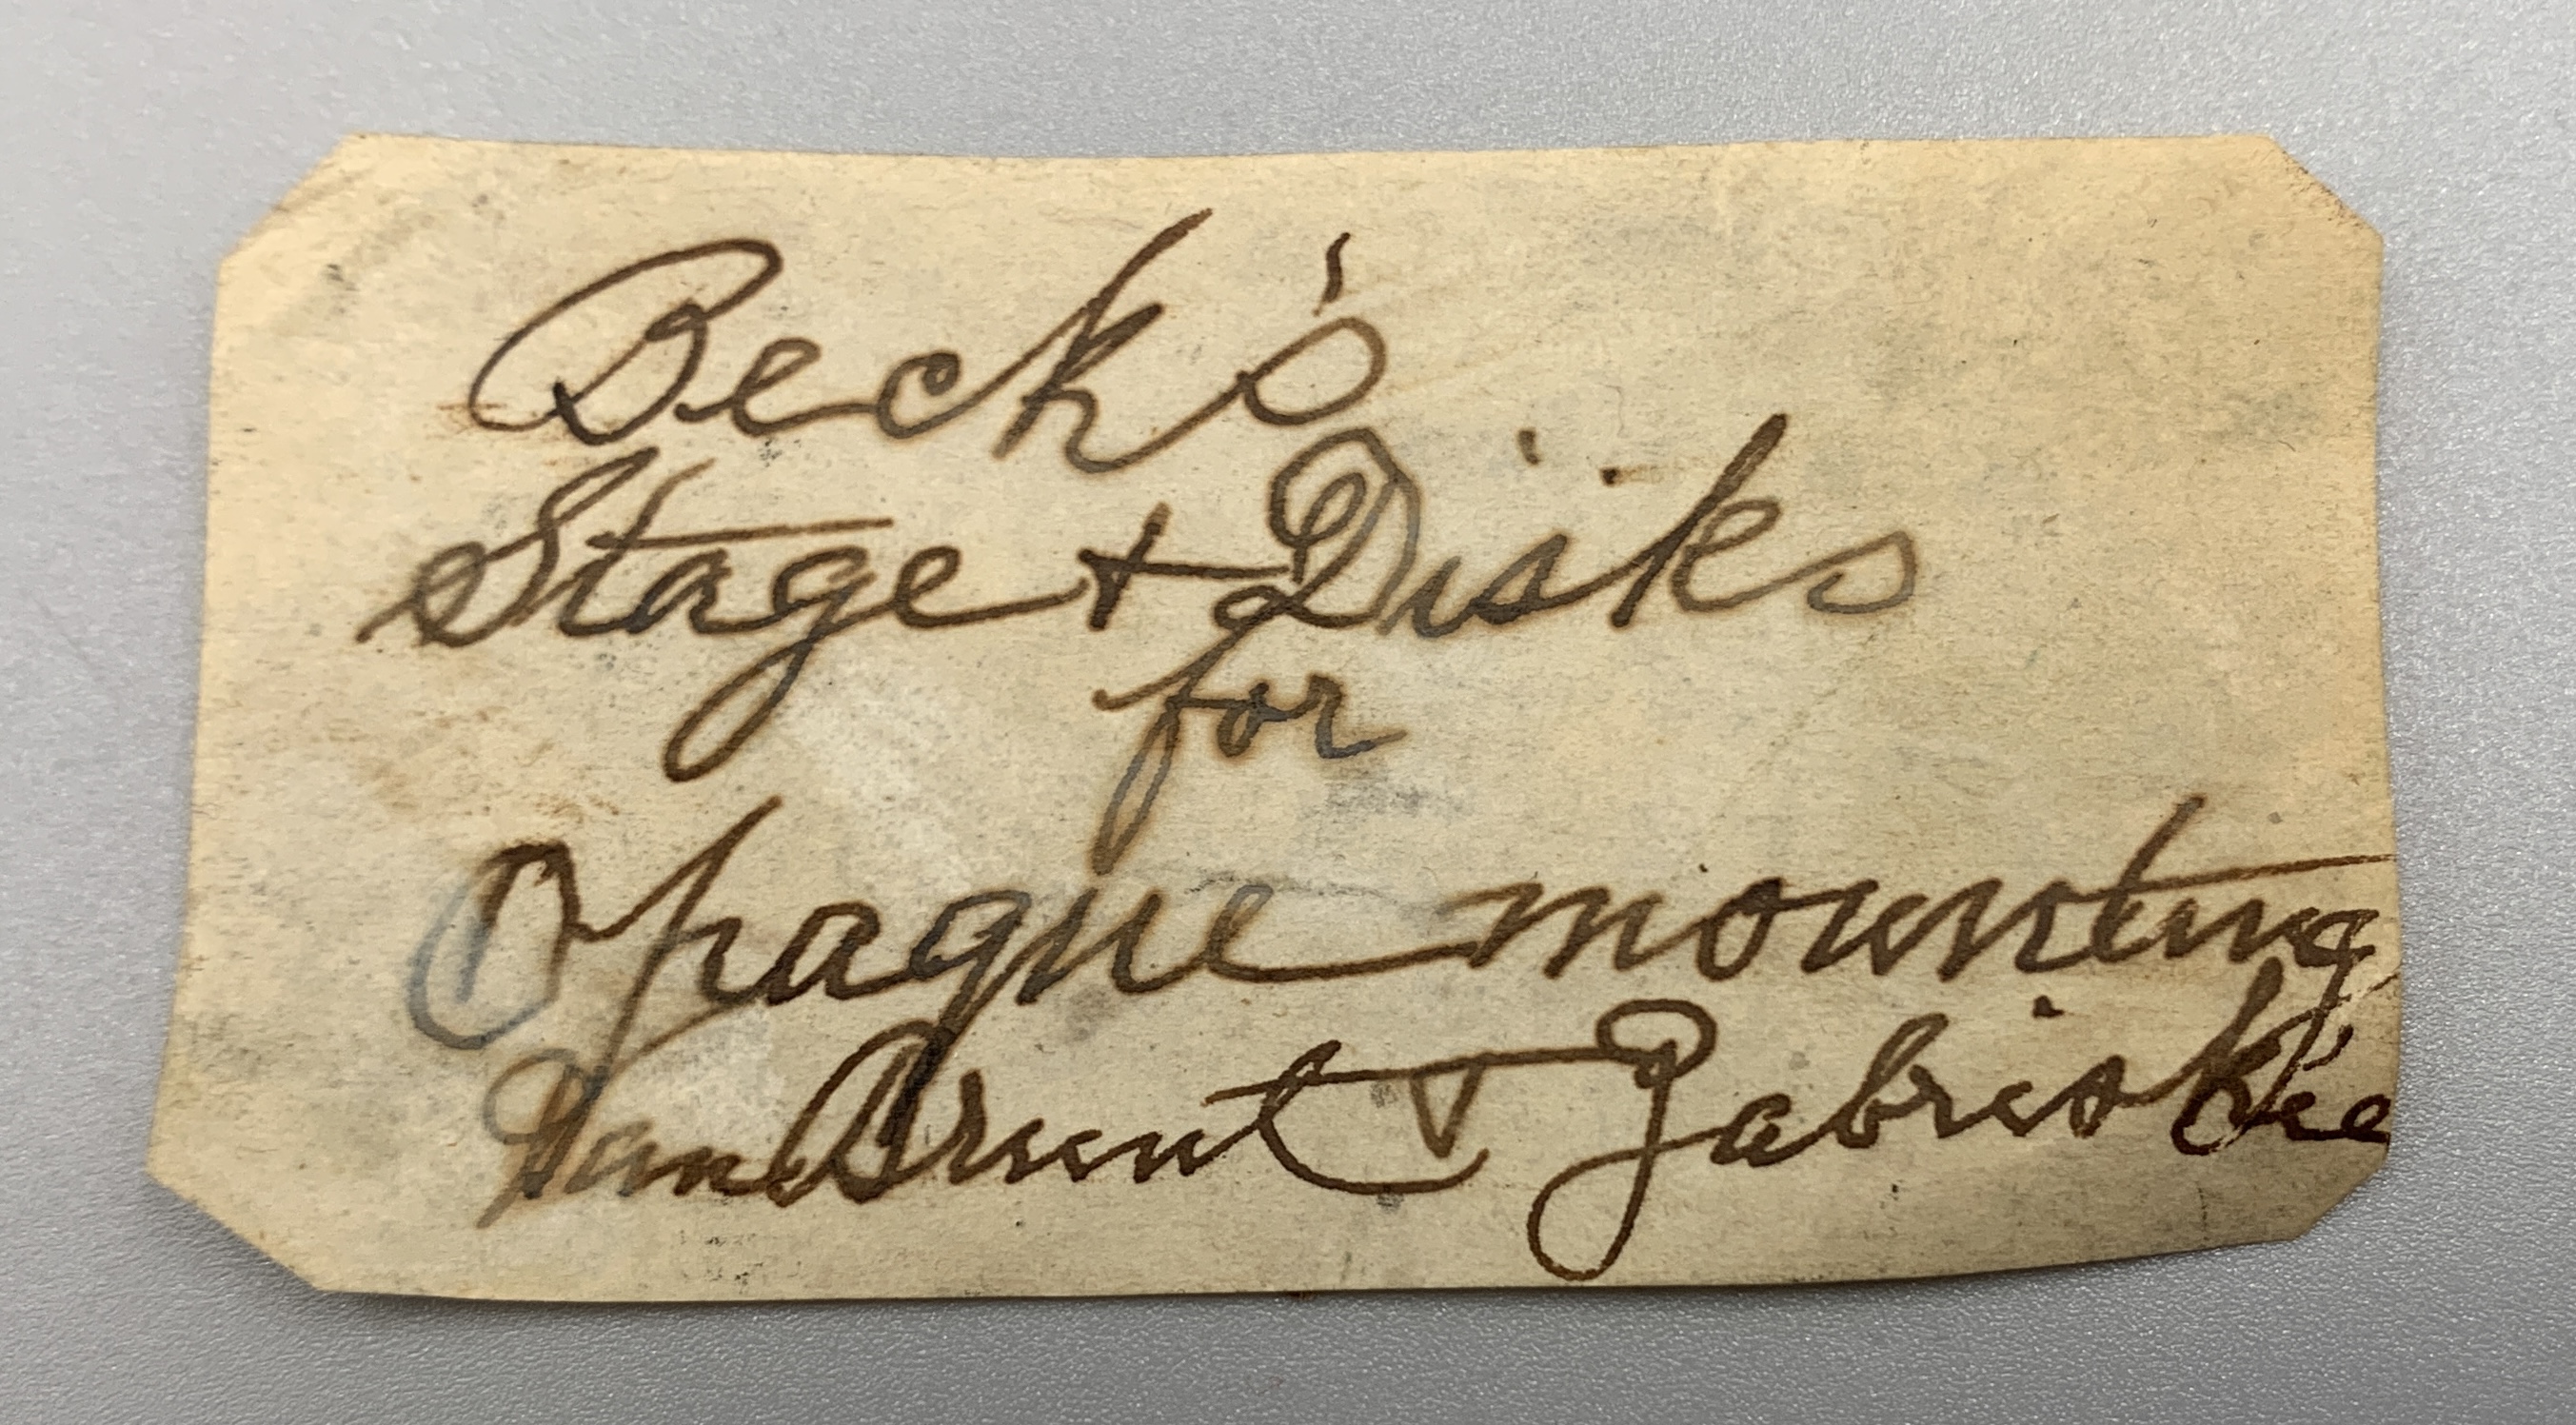 Beck's
Stage + Disks
for
Opaque mounting
Van Brunt & Zabriskie